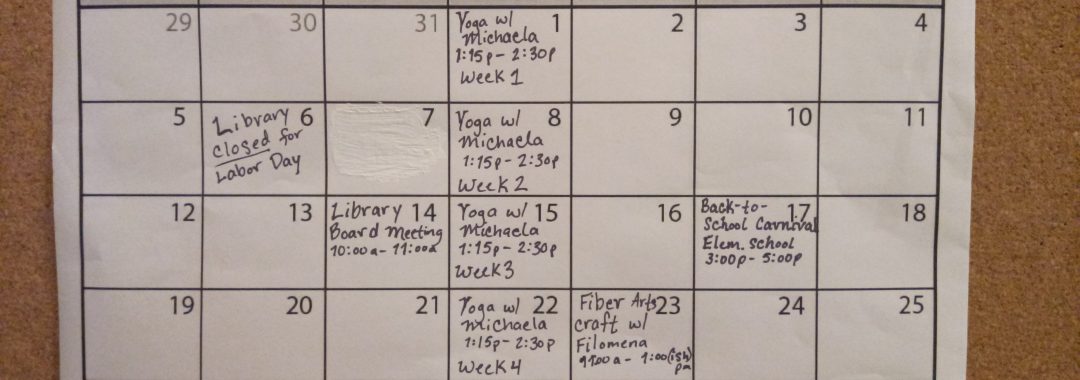 29
30
31
1
Yoga w/
Michaela
1:15p - 2:30p
Week 1
2
3
4
5
6
Library
closed for
Labor Day
7
8
Yoga w/
Michaela
1:15p - 2:30p
Week 2
9
10
11
12
13
14
Library
Board Meeting
10:00a - 11:00a
15
Yoga w/
Michaela
1:15p - 2:30p
Week 3
16
17
Back-to-
School Carnival
Elem. School
3:00p - 5:00p
18
19
20
21
22
Yoga w/
Michaela
1:15p - 2:30p
Week 4
23
Fiber Arts
craft w/
Filomena
- 1:00(ish)
pm
24
25